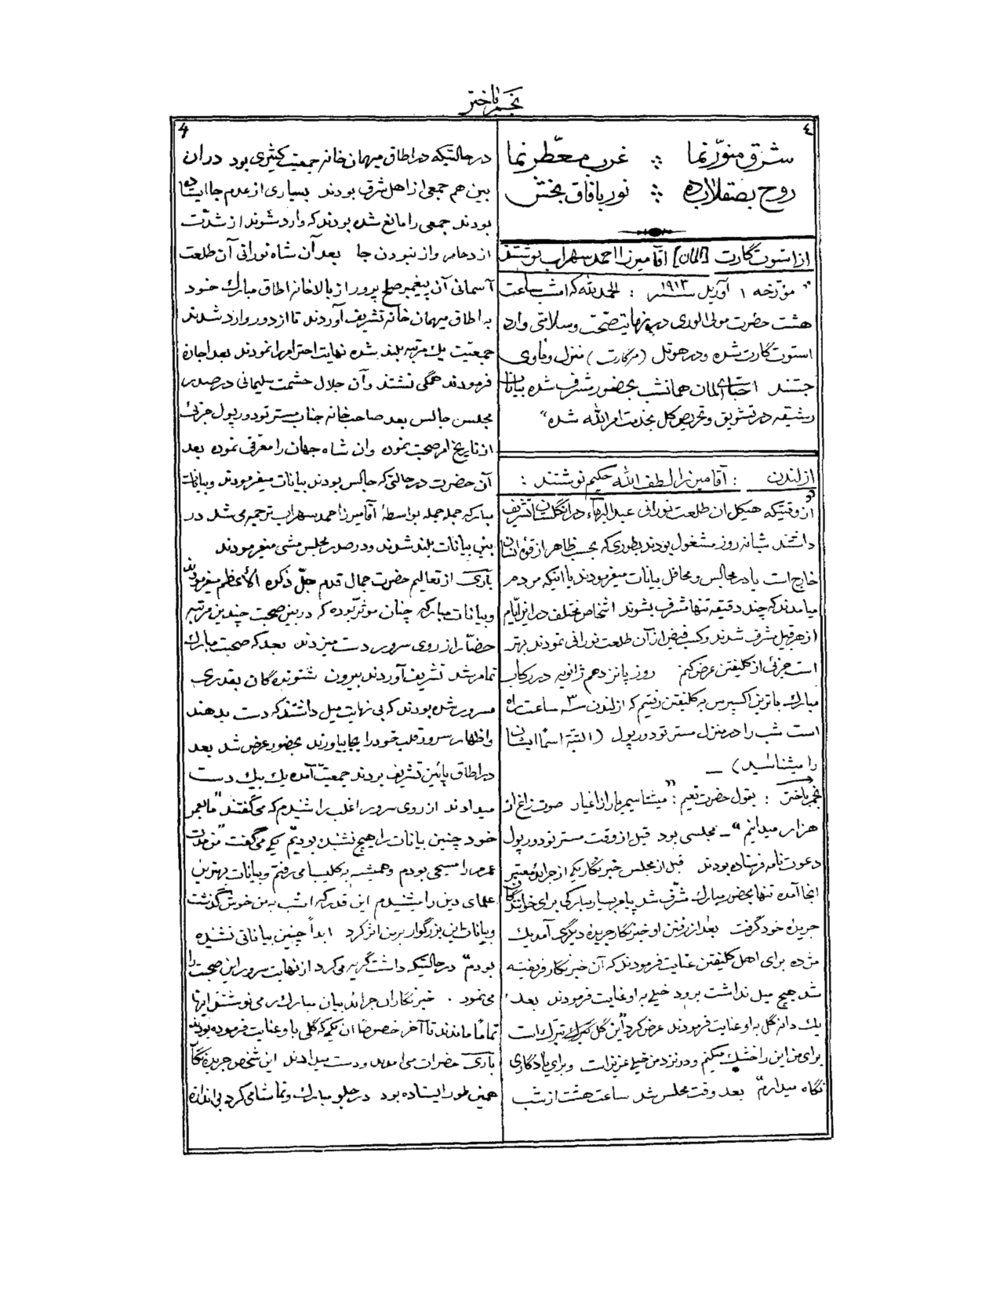 نجم باختر
٤
4
شرق منوّر نما ⁘ غرب معطّر نما
روح بصقلاب ده ⁘ نور بافاق بخش
از استوت گارت [المان] آقا میرزا احمد سهراب نوشتند
" مورّخه ۱ آوریل سنه ۱۹۱۳ : الحمد لله که امشب ساعت
هشت حضرت مولی الوری در نهایت صحّت و سلامتی وارد
استوت گارت شده و در هوتل (مرکارت) منزل و ماوی
جستند احبّای المان همانشب بحضور مشرف شده بیانات
رشیقه در تشویق و تحریص کل بخدمت امر الله شده "
از لندن : آقا میرزا لطف الله حکیم نوشتند :
" از وقتیکه هیکل ان طلعت نورانی عبد البهاء در انگلستان تشریف
داشتند شبانه روز مشغول بودند بطوری که بحسب ظاهر از قوهٔ انسان
خارج است یا در مجالس و محافل بیانات میفرمودند یا اینکه مردم
میامدند که چند دقیقه تنها مشرف بشوند اشخاص مختلف در این ایّام
از هر قبیل مشرف شدند و کسب فیض از آن طلعت نورانی نمودند بهتر
است جزئی از کلیفتن عرض کنم روز پانزدهم ژانویه در رکاب
مبارک با ترین اکسپرس به کلیفتن رفتیم که از لندن سه ۳ ساعت راه
است شب را در منزل مستر تودور پول (البته اسماً ایشان
را میشناسید) ــ
نجم باختر : بقول حضرت نعیم : "میشناسیم یار از اغیار صوت زاغ از
هزار میدانیم" ــ مجلسی بود قبل از وقت مستر تودور پول
دعوت نامه فرستاده بودند قبل از مجلس خبر نگار یکی از جراید معتبر
انجا آمده تنها بحضور مبارک مشرّف شد پیام بسیار مبارکی برای خوانندگان
جریده خود گرفت بعد از رفتن او خبر نگار جریدهٔ دیگری آمد یک
مژده برای اهل کلیفتن عنایت فرمودند که آن خبر نگار فریفته
شد هیچ میل نداشت برود خیلی به او عنایت فرمودند بعد
یک دانه گل به او عنایت فرمودند عرض کرد "این گل تبرک است
برای من این را خشک میکنم و در نزد من خیلی عزیز است و برای یادگاری
نگاه میدارم" بعد وقت مجلس شد ساعت هشت از شب
در حالتیکه در اطاق میهمان خانه جمعیت کثیری بود در ان
بین هم جمعی از اهل شرق بودند بسیاری از عدم جا ایستاده
بودند جمعی را مانع شده بودند که وارد شوند از شدّت
ازدحام و از نبودن جا بعد آن شاه نورانی آن طلعت
آسمانی آن پیغمبر صلح پرور از بالاخانه اطاق مبارک خود
به اطاق میهمان خانه تشریف آوردند تا از دور وارد شدند
جمعیّت یک مرتبه بلند شده نهایت احترام را نمودند بعد اجازه
فرمودند همگی نشستند و آن جلال حشمت سلیمانی در صدر
مجلس جالس بعد صاحب خانه جناب مستر تودور پول جزئی
از تاریخ امر صحبت نموده و ان شاه جهان را معرّفی نموده بعد
آن حضرت در حالتی که جالس بودند بیانات میفرمودند و بیانات
مبارکه جمله جمله بواسطهٔ آقا میرزا احمد سهراب ترجمه می شد در
بین بیانات بلند شدند و در صدر مجلس مشی میفرمودند
باری از تعالیم حضرت جمال قدم جلّ ذکره الأعظم میفرمودند
و بیانات مبارکه چنان موثّر بوده که در بین صحبت چندین مرتبه
حضّار از روی سرور دست میزدند بعد که صحبت مبارک
تمام شد تشریف آوردند بیرون شنونده گان بقدری
مسرور شده بودند که بی نهایت میل داشتند که دست بدهند
و اظهار سرور قلب خود را بجا بیاورند بحضور عرض شد بعد
در اطاق پائین تشریف بردند جمعیّت آمده یک یک دست
میدادند از روی سرور اغلب را شنیدم که می گفتند "ما بعمر
خود چنین بیانات را هیچ نشنیده بودیم" یکی می گفت "من مدت
عمرم را مسیحی بودم و همیشه به کلیسا می رفتم و بیانات بهترین
علمای دین را میشنیدم این قدر که امشب به من خوش گذشت
و بیانات این بزرگوار بمن اثر کرد ابداً چنین بیاناتی نشنیده
بودم" در حالتیکه داشت گریه می کرد از نهایت سرور این صحبت را
می نمود . خبر نگاران جراید بیان مبارک را می نوشتند اینها
تماماً ماندند تا آخر خصوصاً ان یکی که گلی باو عنایت فرموده بودند
باری حضرات می امدند و دست میدادند این شخص جریده نگار
همین طور ایستاده بود در جلو مبارک و تماشا می کرد بی اندازه